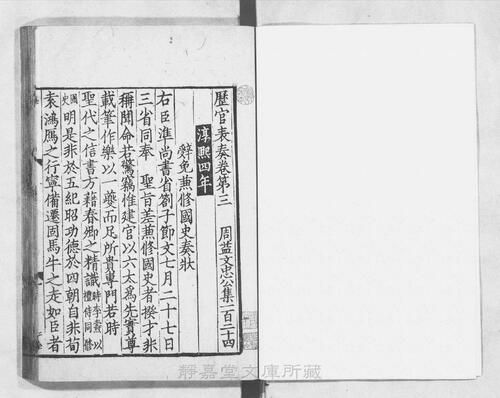 歷官表奏卷第三 周益文忠公集一百二十四
淳熙四年
辭免兼修國史奏狀
右臣準尚書省劄子節文七月二十七日
三省同奉 聖旨差兼修國史者揆才非
稱聞命若驚竊惟建官以六太爲先實尊
載筆作樂以一夔而足所貴專門若時
聖代之信書方藉春卿之精識時李燾以禮侍同修國史
明是非於五紀昭功德於四朝自非荀
袁鴻鴈之行寧備遷固馬牛之走如臣者
靜嘉堂文庫所藏